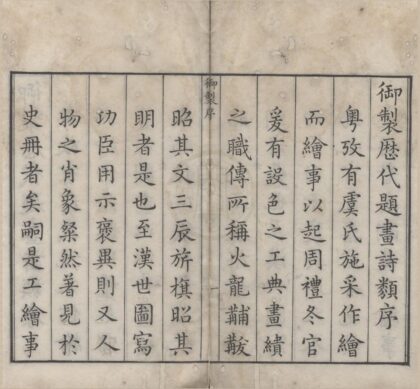 御製歴代題畫詩類序
粤攷有虞氏施采作繪
而繪事以起周禮冬官
爰有設色之工典畫繢
之職傳所稱火龍黼黻
御製序
一
昭其文三辰旂旗昭其
明者是也至漢世圖寫
功臣用示褒異則又人
物之肖象粲然著見於
史冊者矣嗣是工繪事